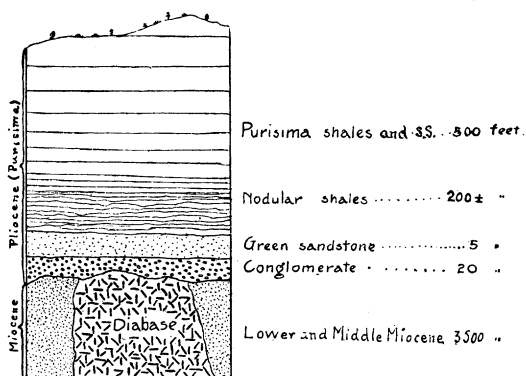 Pliocene (Purisima)
Miocene
Purisima shales and S.S. . . 800 feet.
Nodular shales ......... 200± "
Green sandstone .............. 5 "
Conglomerate . ....... 20 "
Diabase
Lower and Middle Miocene 3500 "